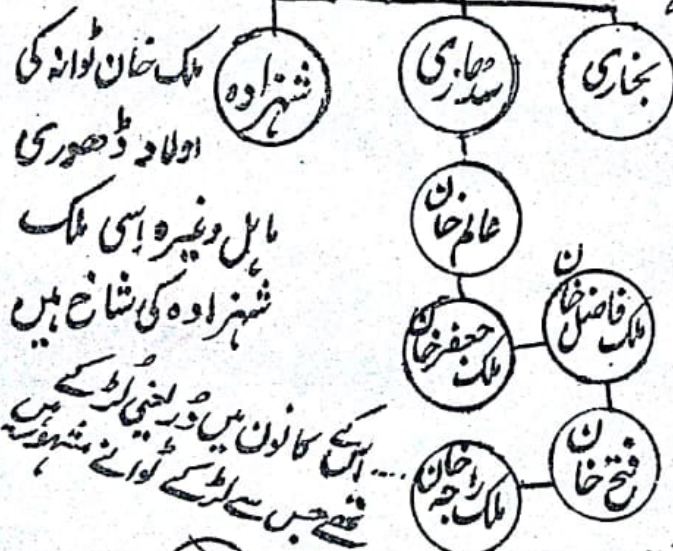 بخاری
شہزادہ
ملک خان ٹوانہ کی
اولاد ڈھوری
ماہل وغیرہ اسی ملک
شہزادہ کی شاخ ہیں
عالم خان
ملک جعفر خان
ملک فاضل خان
فتح خان
ملک راجہ خان
.... اس کے کانوں میں دُر یعنی لڑکے
تھے جس سے لڑکے ٹوانے مشہور ہیں